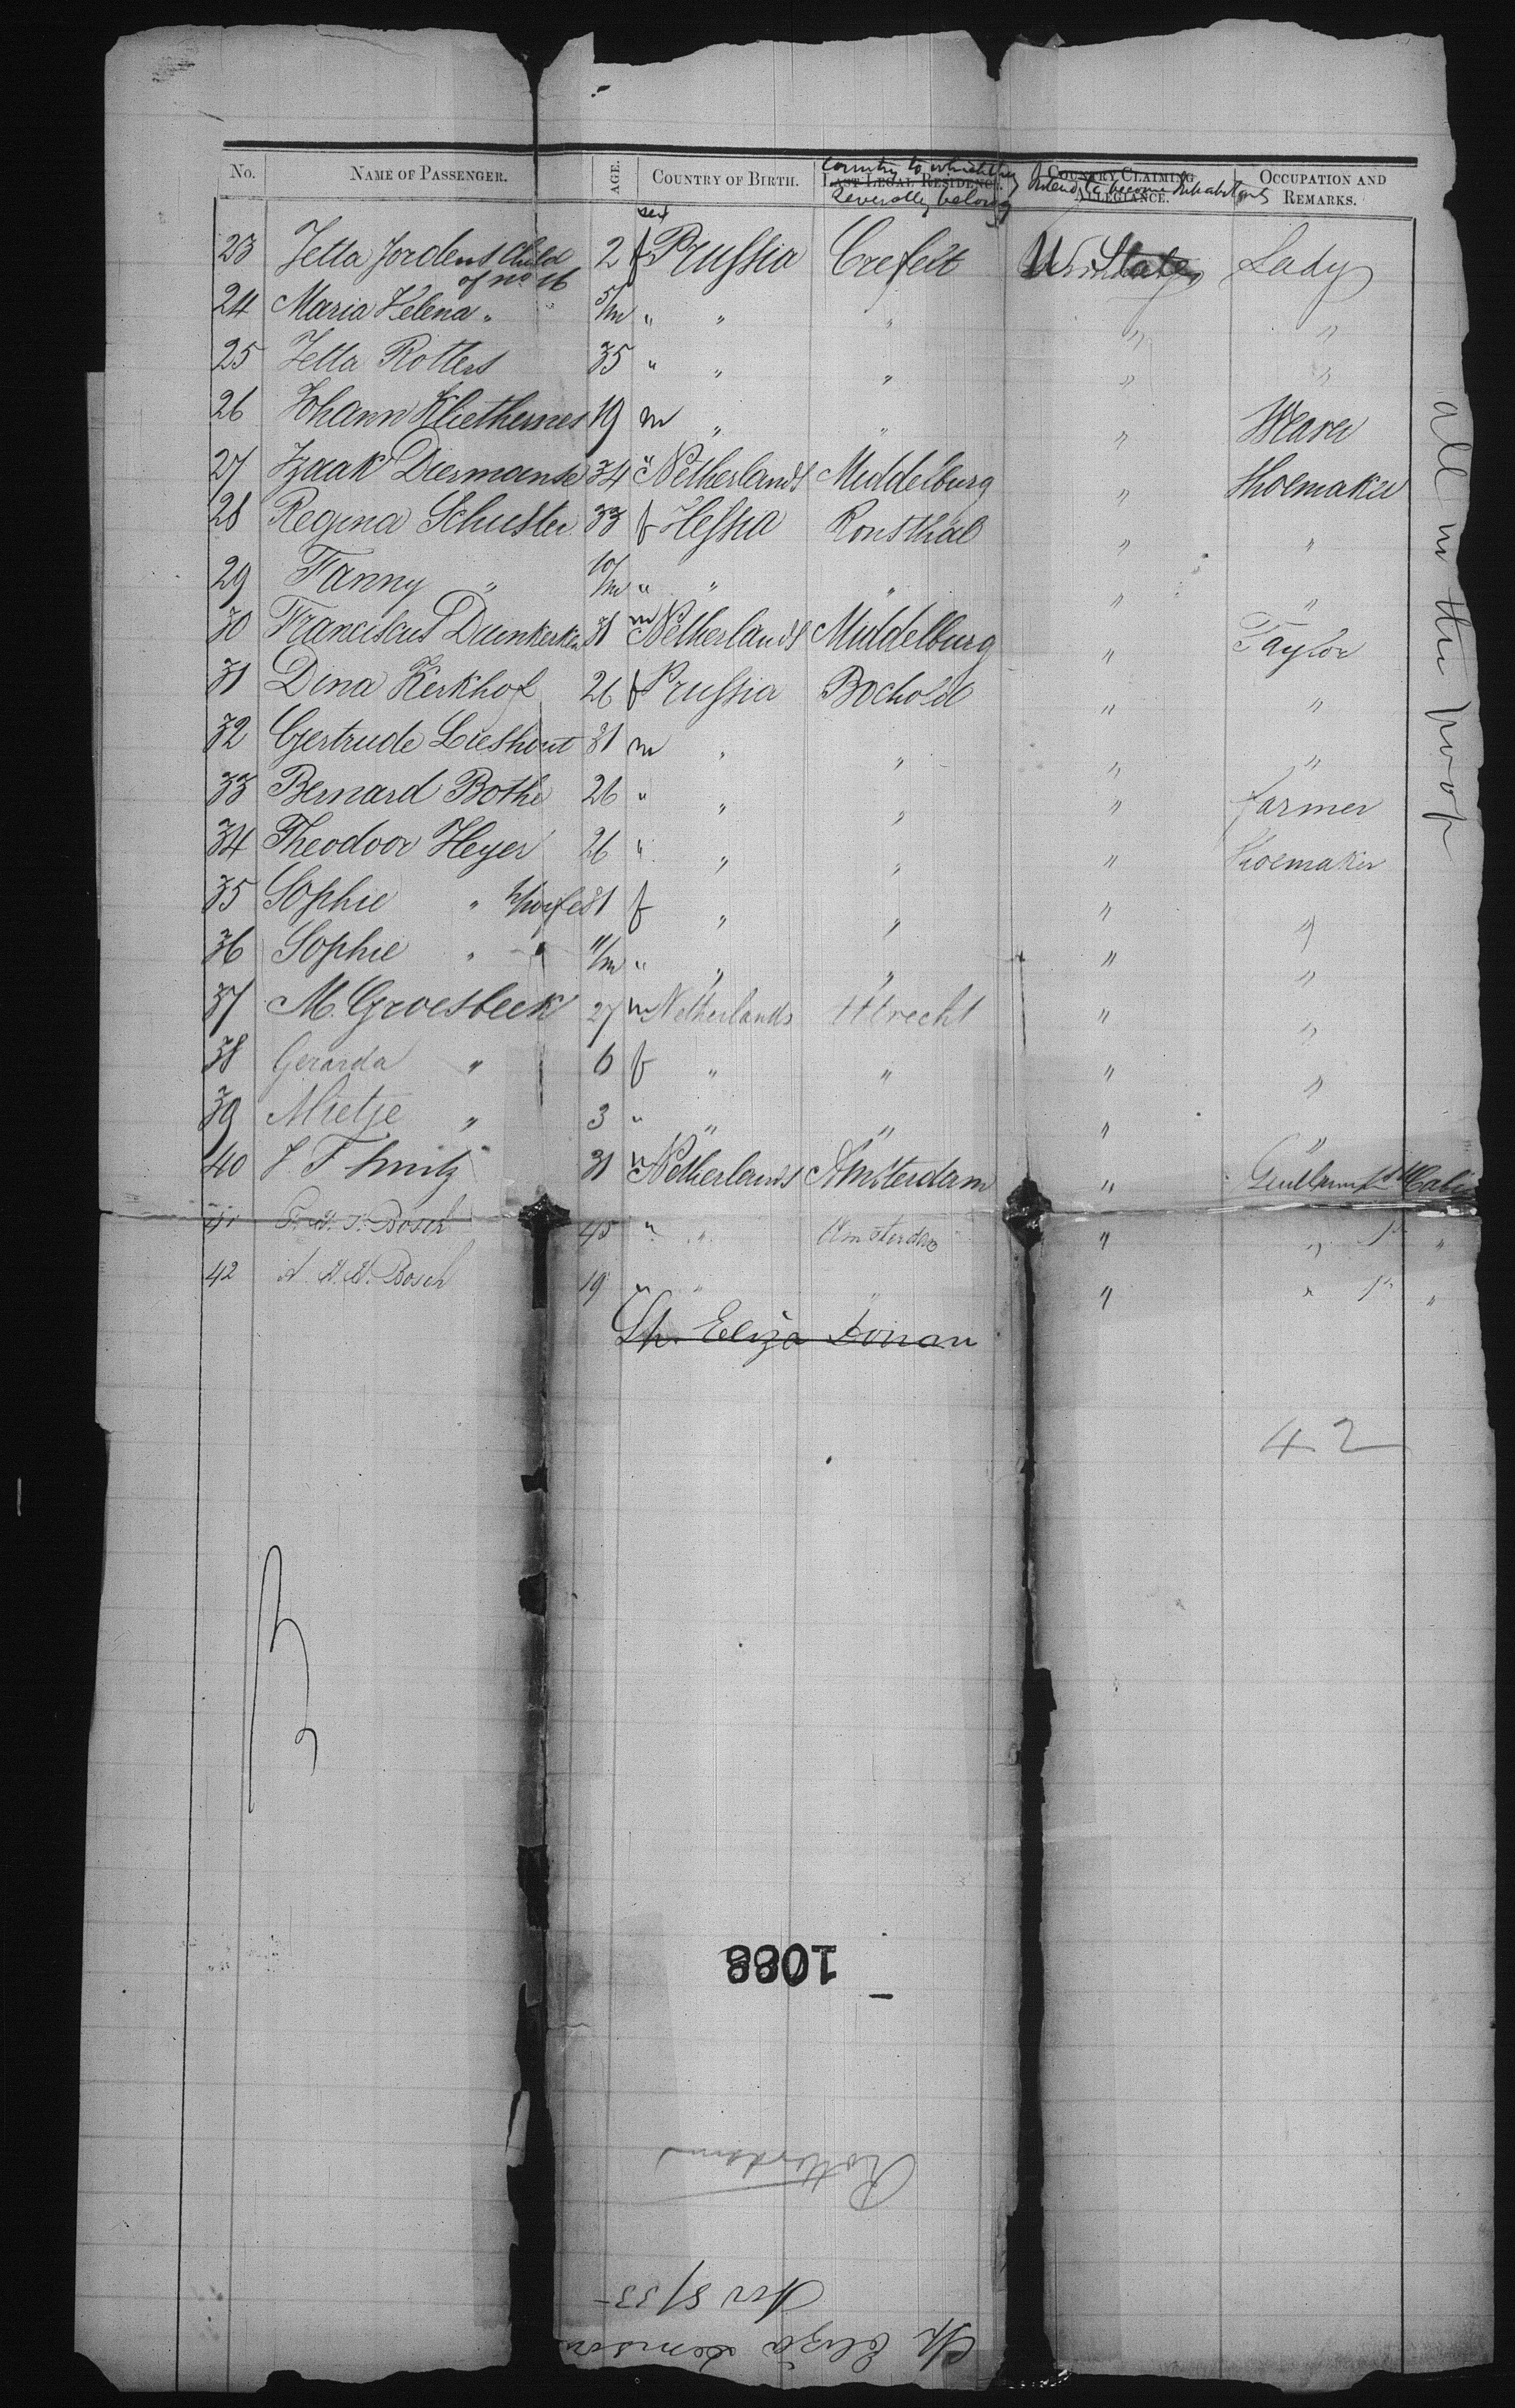 No. NAME OF PASSENGER. AGE. COUNTRY OF BIRTH. LAST LEGAL RESIDENCE. COUNTRY CLAIMING ALLEGIANCE. OCCUPATION AND REMARKS.
sex Country to which they severally belong intend to become inhabitants
23 Jetta Jordens child of no 16 2 f Prussia Crefelt Un. States Lady
24 Maria Helena " 5/m " " " " "
25 Jetta Rotters 35 " " " " "
26 Johann Kliethermes 19 m " " " Weaver
27 Izaak Diermanse 34 " Netherlands Middelburg " Shoemaker
28 Regina Schuster 33 f Hessia Ronsthal " "
29 Fanny " 10/m " " " " "
30 Franciscus Duinkerke 31 m Netherlands Middelburg " Taylor
31 Dina Kerkhof 26 f Prussia Bocholt " "
32 Gertrude Lieshout 31 m " " " "
33 Bernard Bothe 26 " " " " farmer
34 Theodoor Heyer 26 " " " " Shoemaker
35 Sophie " wife 31 f " " " "
36 Sophie " " 11/m " " " " "
37 M. Groesbeek 27 m Netherlands Utrecht " "
38 Gerarda " 6 f " " " "
39 Mietje " 3 " " " " "
40 J. F. Smitz 31 m Netherlands Amsterdam "
41 Bosch 45 " " Amsterdam " "
42 A. Bosch 19 " " " " "
all in the poop
Sh. Eliza
42
1088
Rotterdam
Nov 8/53
Sh Eliza